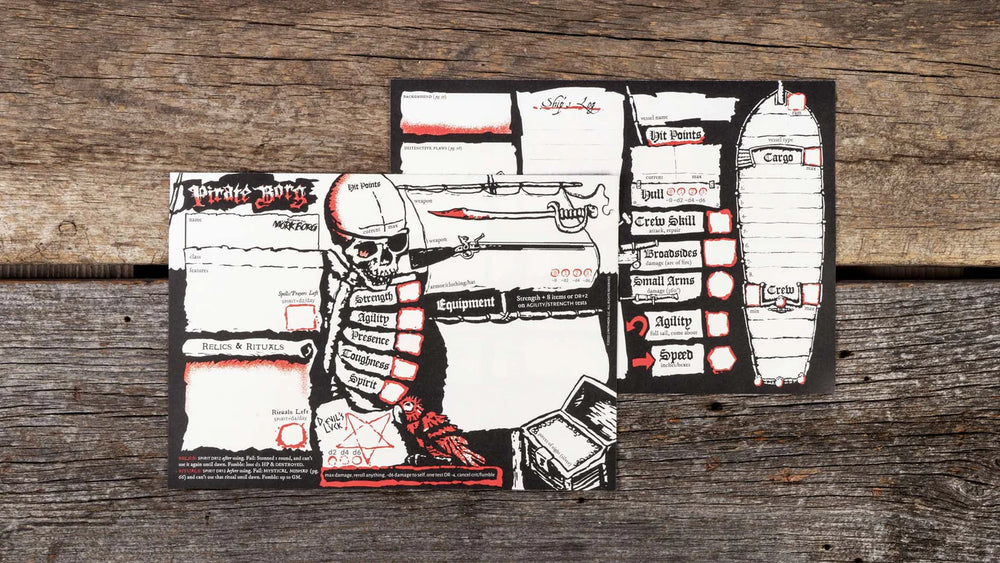 Pirate Borg
name
MÖRK BORG
class
features
Spells/Prayers Left
SPIRIT+D4/DAY
RELICS & RITUALS
Rituals Left
SPIRIT+D4/DAY
RELICS: SPIRIT DR12 after using. Fail: Stunned 1 round, and can't
use it again until dawn. Fumble: lose d2 HP & DESTROYED.
RITUALS: SPIRIT DR12 before using. Fail: MYSTICAL MISHAP (pg.
66) and can't use that ritual until dawn. Fumble: up to GM.
Hit Points
current
max
Strength
Agility
Presence
Toughness
Spirit
DEVIL'S
LUCK
d2 d4 d6
max damage, reroll anything, -d6 damage to self, one test DR -4, cancel crit/fumble
weapon
weapon
armor/clothing/hat
-0 -d2 -d4 -d6
Equipment
Strength + 8 items or DR+2
on AGILITY/STRENGTH tests
BACKGROUND
DISTINCTIVE FLAWS
Ship's Log
vessel name
Hit Points
current
max
Hull
-0 -d2 -d4 -d6
Crew Skill
attack, repair
Broadsides
damage (arc of fire)
Small Arms
damage (360°)
Agility
full sail, come about
Speed
inches/hexes
ram
vessel type
Cargo
Crew
min
max